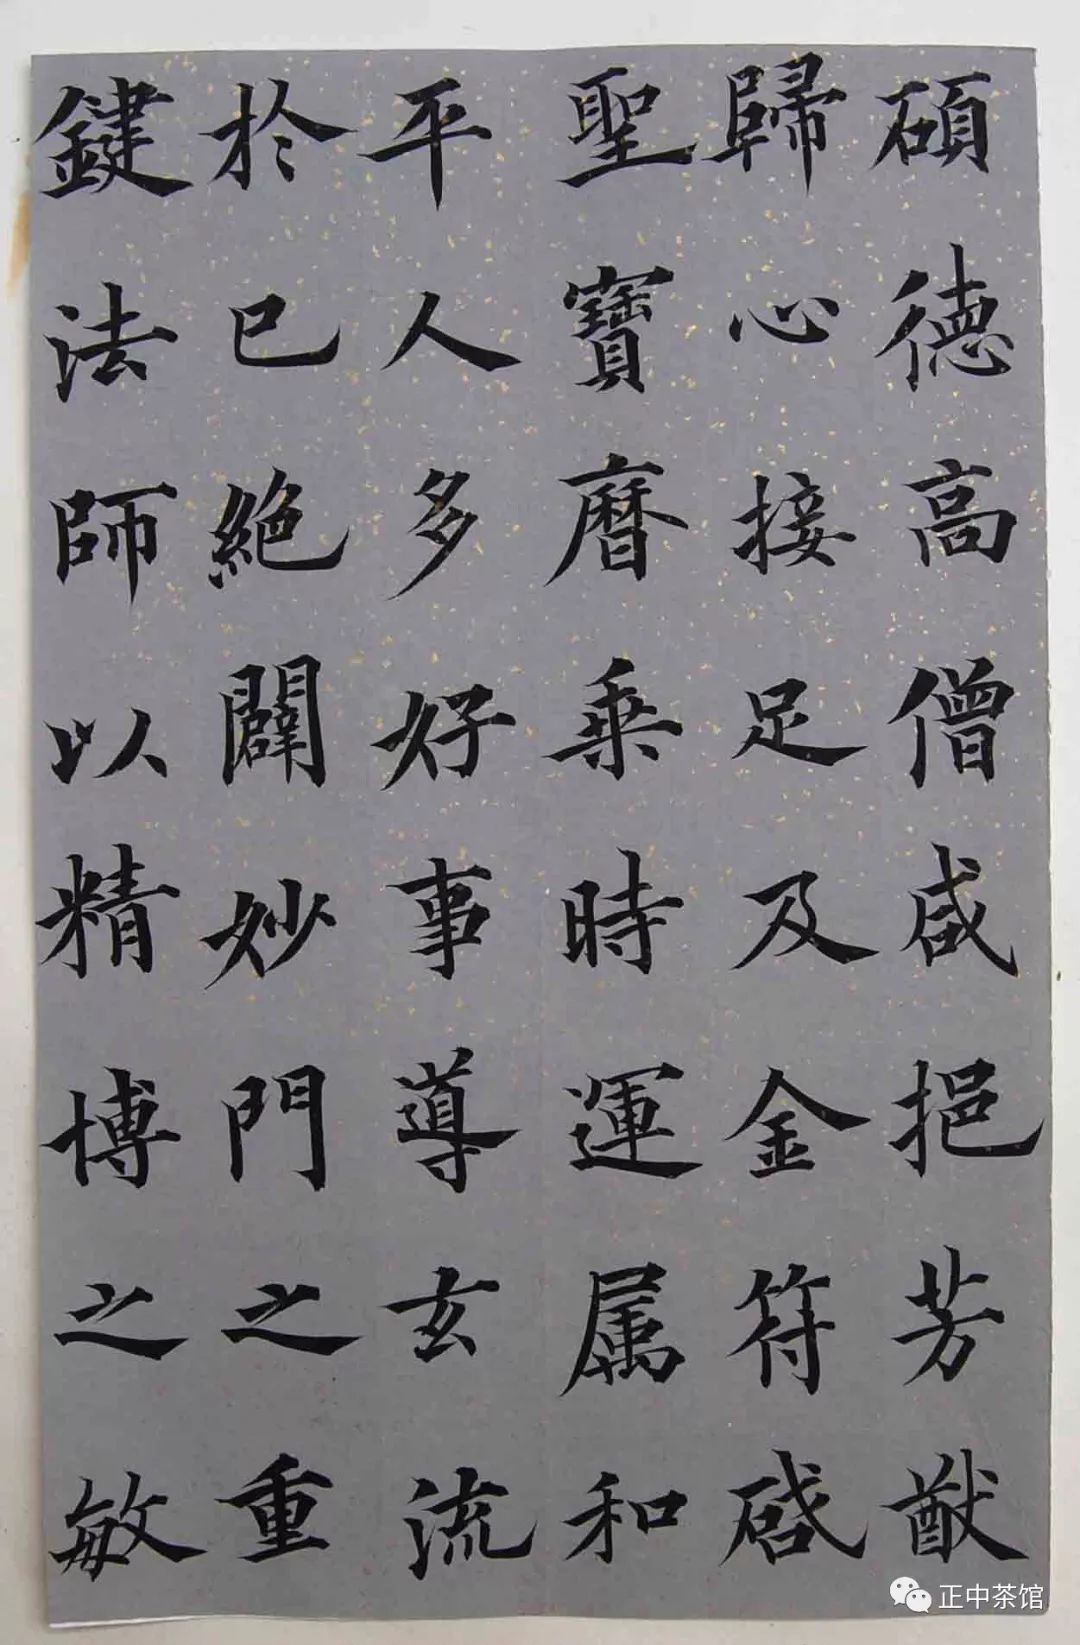 碩德高僧咸挹芳猷
歸心接足及金符啓
聖寶曆乘時運属和
平人多好事導玄流
於已絶闢妙門之重
鍵法師以精博之敏
正中茶馆